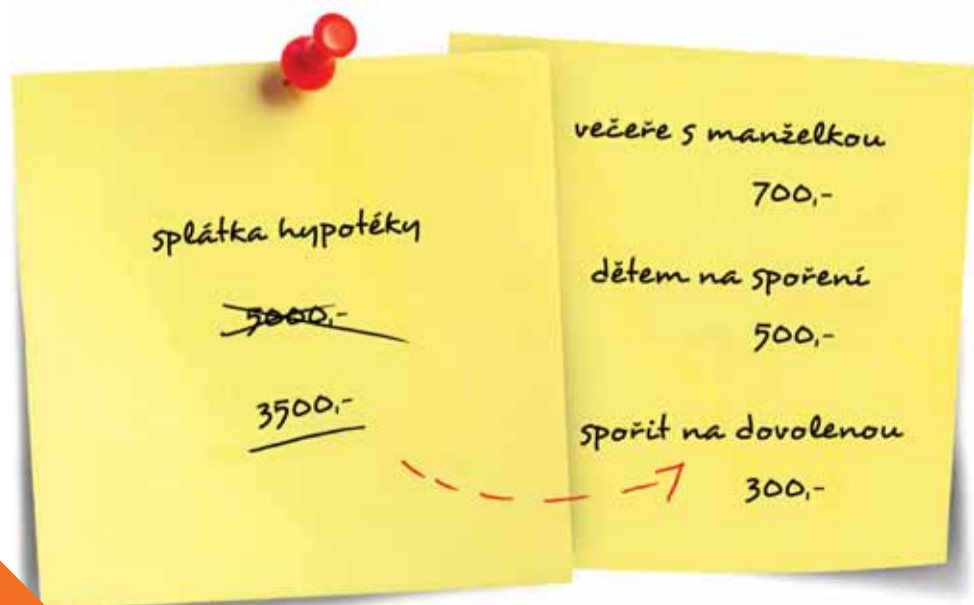 splátka hypotéky
5000,-
3500,-
večeře s manželkou
700,-
dětem na spoření
500,-
spořit na dovolenou
300,-